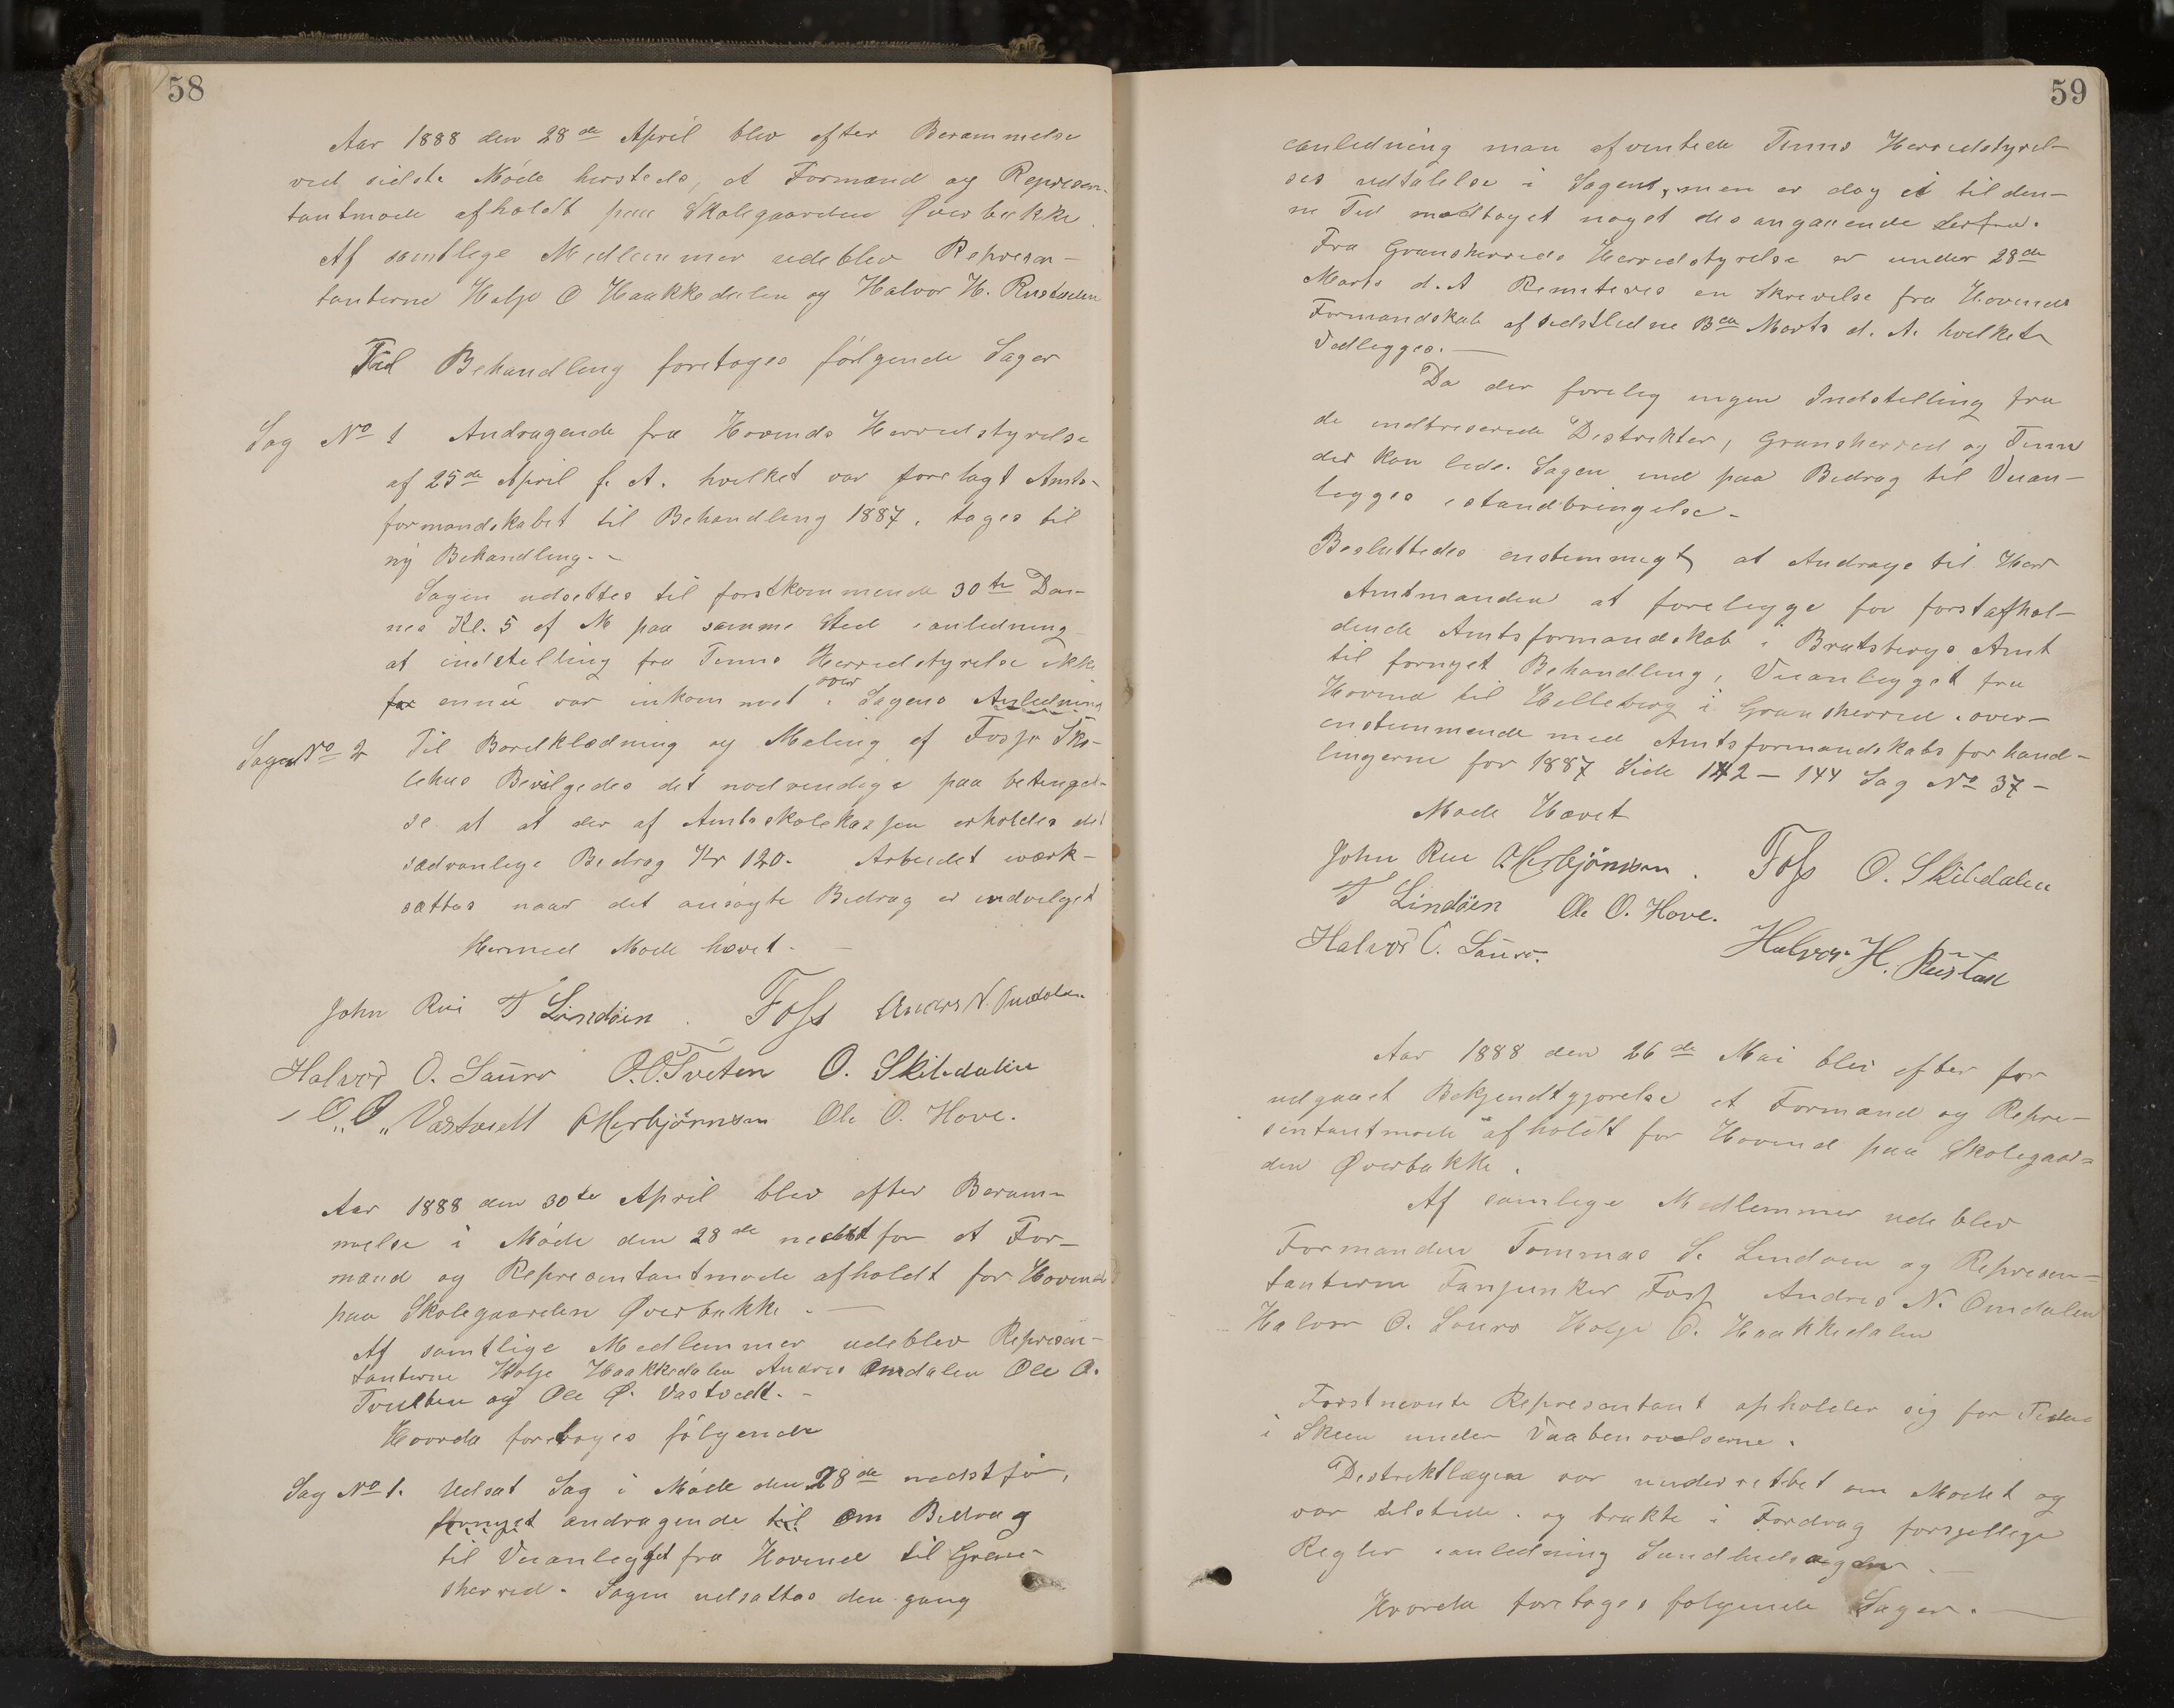 58
Aar 1888 den 28de April blev efter Berammelse
ved sidste Möde hersteds, et Formænd og Represen-
tantmøde afholdt paa Skolegaarden Øverbække.
Af samtlige Medlemmer udeblev Represen-
tanterne Holje O Haakkedalen og Halvor H. Rustaden
Til Behandling foretoges fölgende Sager
Sag No 1 Andragende fra Hovinds Herredstyrelse
af 25de April f. A. hvilket var forelagt Amts-
formandskabet til Behandling 1887, tages til
ny Behandling. -
Sagen udsettes til førstkommende 30te Den-
nes Kl. 5 ef M paa samme Sted i anledning
at indstelling fra Tinns Herredstyrelse ikke
for ennu var inkommet over i Sagens Anledning
Sagen No 2 Til Bordklædning og Maling af Fosso Sko-
lehus Bevilgedes det nødvendige paa betingel-
se at at der af Amtsskolekassen erholdes det
sædvanlige Bedrag Kr 120. Arbeidet værk-
sættes naar det ansögte Bedrag er indvilget
Hermed Møde hævet. -
John Rui T Lindöen . Foss Anders N. Omdalen
Halvor O. Sauro O.O. Tveten O. Skibedalen
O. Ø. Vastveit O Herbjörnsen Ole O. Hove.
Aar 1888 den 30te April blev efter Beram-
melse i Möde den 28de nedstfor et For-
mænd og Representantmøde afholdt for Hovind
paa Skolegaarden Øverbække. -
Af samtlige Medlemmer udeblev Represen-
tanterne Holje Haakkedalen Andres Omdalen Ole O.
Tveiten og Ole Ø. Vastveit. -
Hvorda foretoges fölgende
Sag No 1. Udsat Sag i Møde den 28de nedstfor,
fornyet andragende til om Bedrag
til Veianlegget fra Hovind til Gran-
sherred. Sagen udsattes den gang
59
ianledning man afventede Tinns Herredstyrel-
ses udtalelse i Sagen, men er dog ei til den-
ne Tid modtaget noget desangaaende derfra.
Fra Gransherreds Herredstyrelse er under 28de
Marts d. A Remiteres en skrivelse fra Hovinds
Formandskab af sidstledne 13de Marts d. A. hvilket
Vedlegges. -
Da der forelig ingen Indstelling fra
de indtreserede Distrikter, Gransherred og Tinn
der kan lede Sagen ind paa Bedrag til Veian-
legges istandbringelse -
Besluttedes enstemmigt, at Andrage til Herr
Amtmanden at forelegge for førstafhol-
dende Amtsformandskab i Bratsbergs Amt
til fornyet Behandling, Veianlegget fra
Hovind til Helleberg i Gransherred i over-
enstemmende med Amtsformandskabs forhand-
lingerne for 1887 Side 142 - 144 Sag No 37 -
Møde Hævet
John Rui O. Herbjörnsen . Foss O. Skibedalen
T Lindöen Ole O. Hove.
Halvor O. Sauro. Halvor H. Rustad
Aar 1888 den 26de Mai blev efter for
udgaaet Bekjendtgjørelse et Formænd og Repre-
sentantmøde afholdt for Hovind paa Skolegaar-
den Øverbække.
Af samlige Medlemmer udeblev
Formanden Tommas S. Lindøen og Represen-
tanterne Fanjunker Foss Andres N. Omdalen
Halvor O. Sauro Holje O. Haakkedalen
Forstnevnte Representant opholder sig for Tiden
i Skien under Vaabenøvelserne.
Destriktlægen var underrettet om Mødet og
var tilstede. og brakte i Fordrag forsjellige
Regler ianledning Sundhedssagen. -
Hvorda foretoges følgende Sager. -